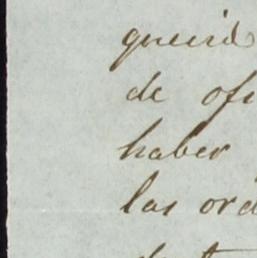 queird
de ofi
haber
las ord